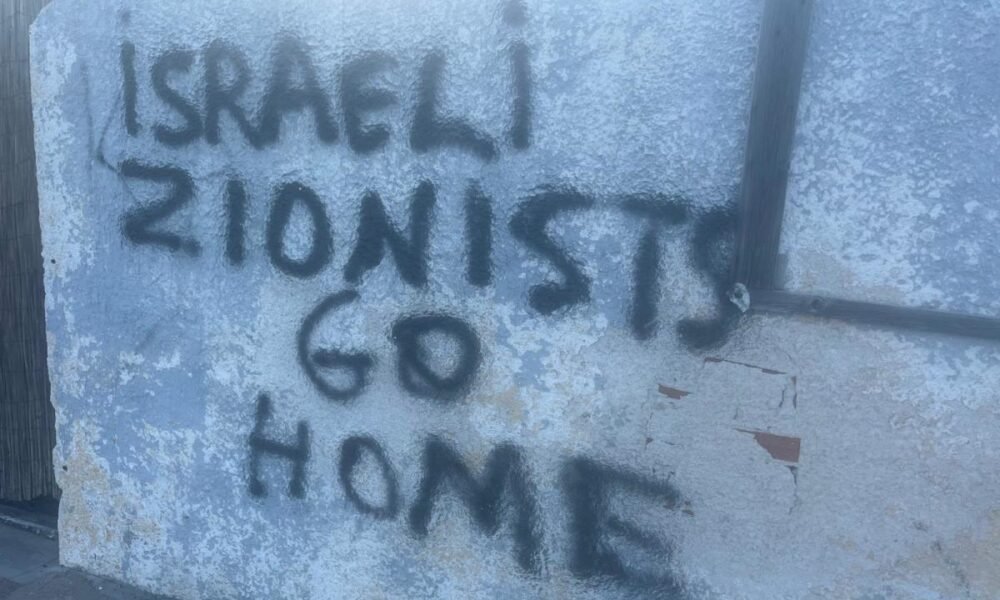 iSRAELi
ZIONISTS
GO
HOME